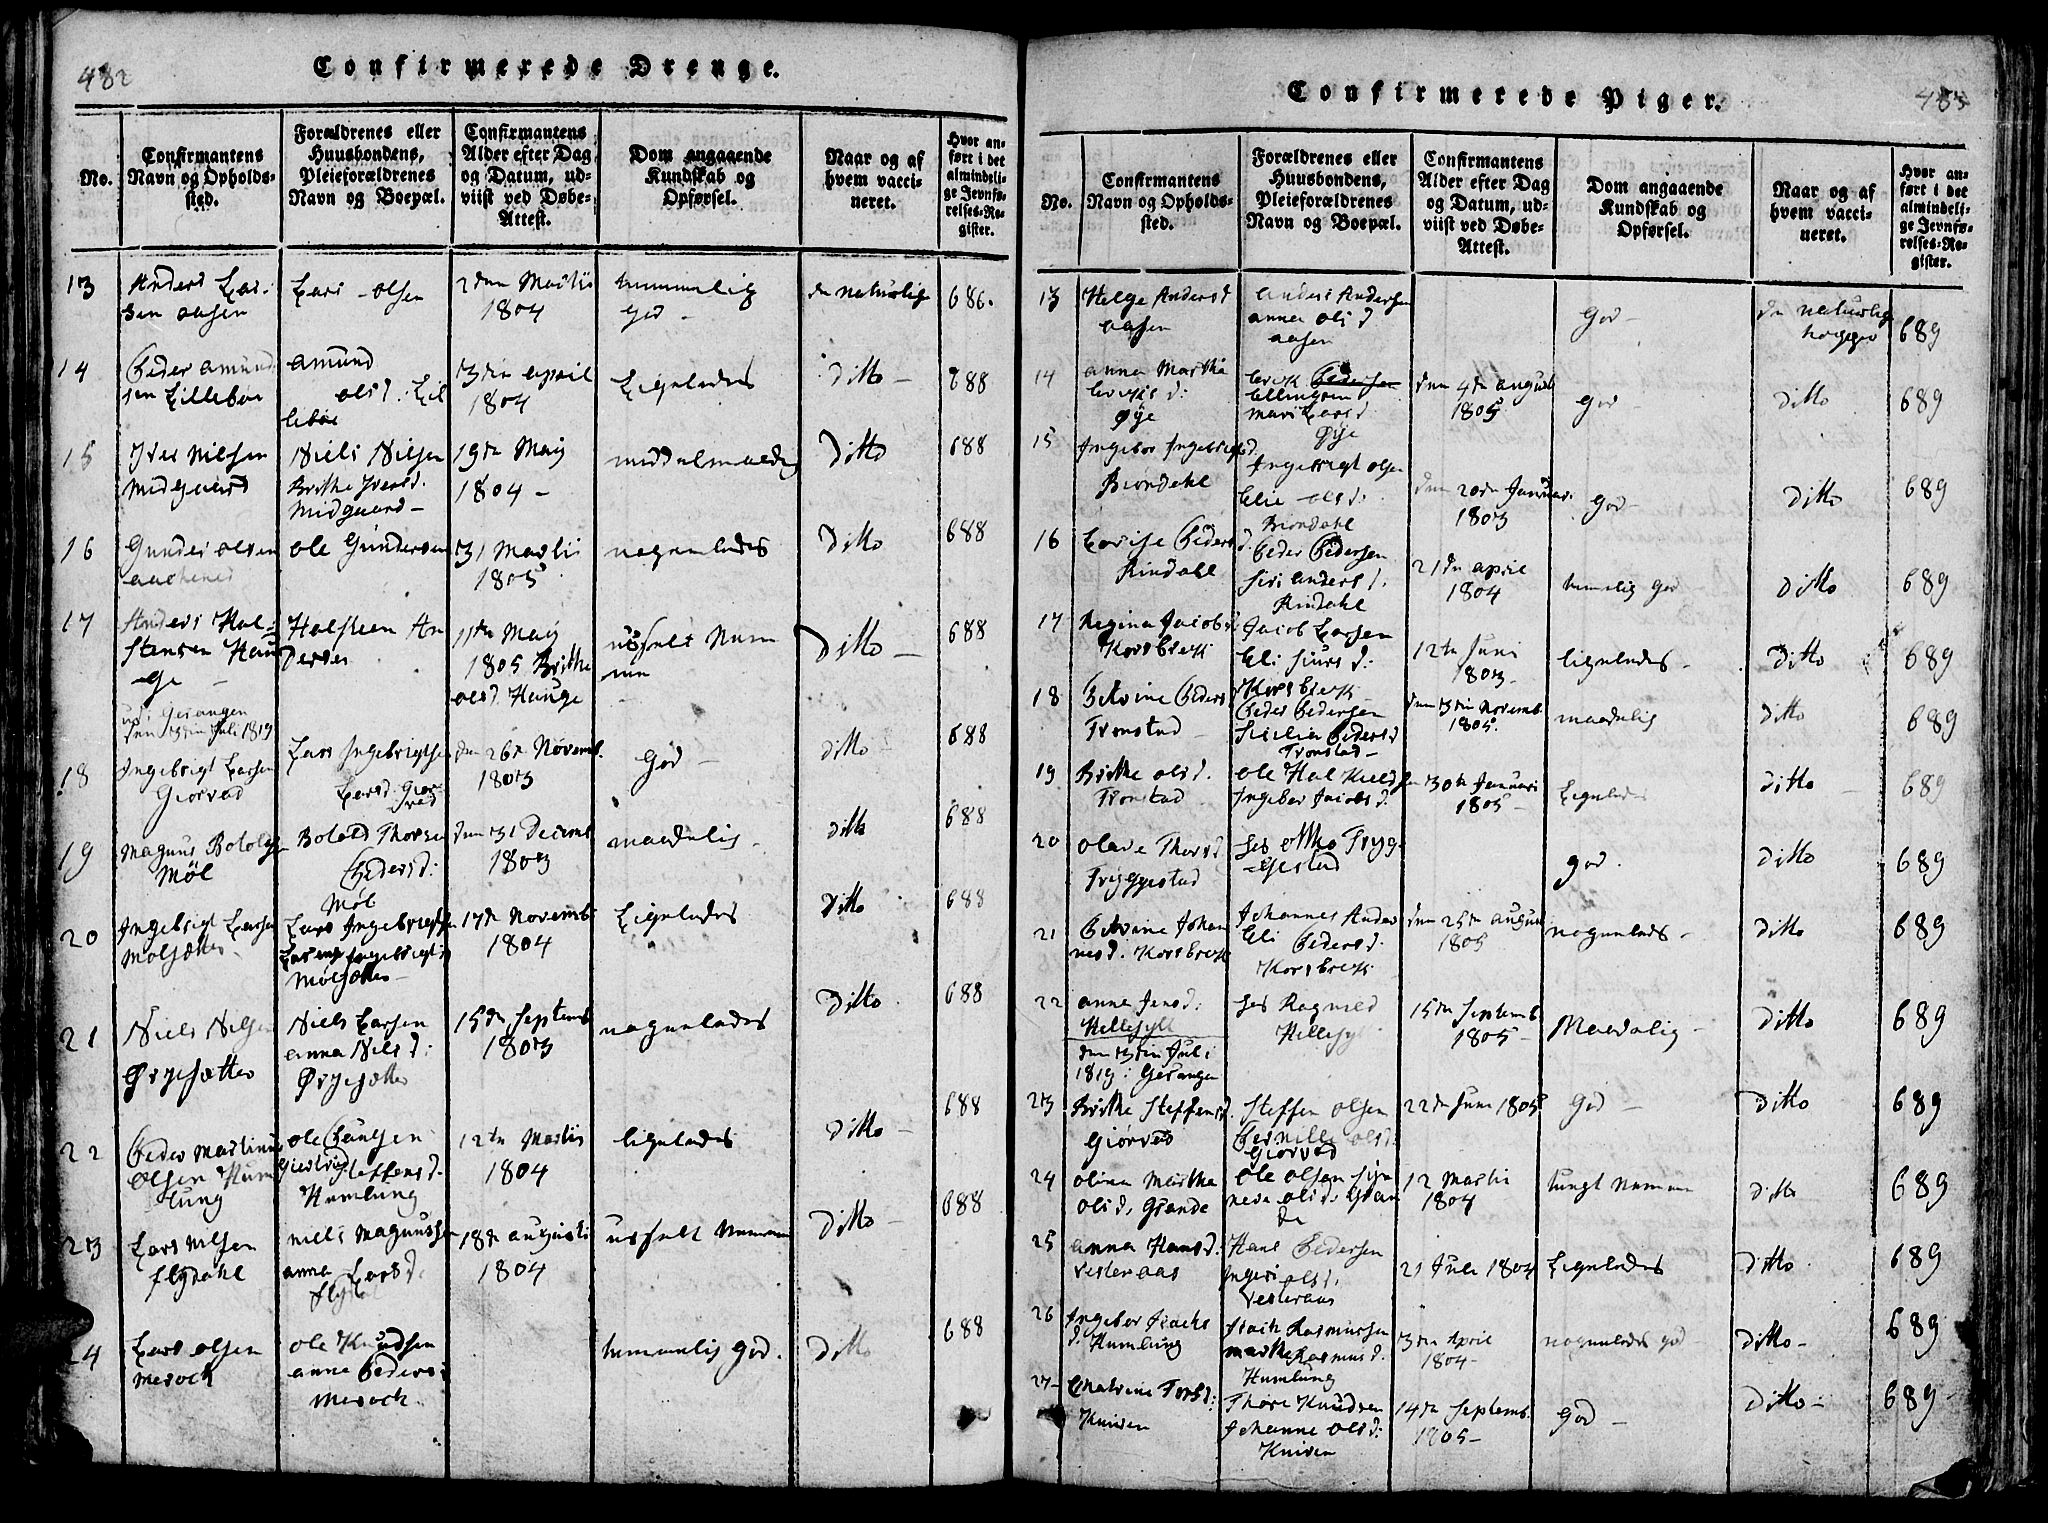 482
Confirmerede Drenge.
No.
Confirmantens
Navn og Opholds-
sted.
Forældrenes eller
Huusbondens,
Pleieforældrenes
Navn og Boepæl.
Confirmantens
Alder efter Dag
og Datum, ud-
viist ved Døbe-
Attest.
Dom angaaende
Kundskab og
Opførsel.
Naar og af
hvem vacci-
neret.
Hvor an-
ført i det
almindeli-
ge Jevnfø-
relses-Re-
gister.
13
Anders Lar-
sen aasen
Lars olsen
2den Martii
1804
temmelig
God
den naturlige
686.
14
Peder amund
sen Lillebøe
amund
olsd. Lil
lebøe
3die april
1804
Ligeledes
Ditto
688
15
Iver Nilsen
Midgaard
Niels Nilsen
Brithe Iversd.
Midgaard
19de Maij
1804
middelmaadig
Ditto
688
16
Gunder olsen
ole Gundersen
31 Martii
1805
nogenledes
Ditto
688
17
Anders Hal-
stensen Hau
ge
Halsteen An
dersen
11te Maij
1805 Brithe
olsd. Hauge
usselt Nem
me
Ditto
688
up i Geranger
den 3die Juli 1819
18
Ingebrigt Larsen
Giørvad
Lars Ingebrigtsen
Larsd. Giør
vad
den 26de Novemb.
1803
God
ditto
688
19
Magnus Botolfsen
Møl
Botold Thorsen
Pedersd:
Møl
den 31 Decemb.
1803
maadelig
ditto
688
20
Ingebrigt Larsen
Molsætter
Lars Ingebrigtsen
Ingebrigtsd.
Mølsætter
17de Novemb
1804
Ligeledes
Ditto
688
21
Niels Nilsen
Ørjesætter
Niels Larsen
anna Nielsd:
Ørjesætter
15de Septemb
1803
nogenledes
Ditto
688
22
Peder Martinus
Olsen Hum
lung
ole Paulsen
Giertrud Steffensd.
Humlung
12te Martii
1804
ligeledes
Ditto
688
23
Lars Nilsen
flydahl
niels Magnussen
anna Larsd.
flydal
18de augusti
1804
usselt Nemme
Ditto
688
24
Lars olsen
Meroch
ole Knudsen
anne Pedersd
Meroch
temmelig God.
Ditto
688
483
Confirmerede Piger.
No.
Confirmantens
Navn og Opholds-
sted.
Forældrenes eller
Huusbondens,
Pleieforældrenes
Navn og Boepæl.
Confirmantens
Alder efter Dag
og Datum, ud-
viist ved Døbe-
Attest.
Dom angaaende
Kundskab og
Opførsel.
Naar og af
hvem vacci-
neret.
Hvor an-
ført i det
almindeli-
ge Jevnfø-
relses-Re-
gister.
13
Helge Andersd
aasen
anders Andersen
anna olsd.
aasen
God
den naturlige
689
14
anna Martha
Erichsd:
Øye
Erich Pedersen
Ellingsen
mari Larsd.
Øye
den 4de august
1805
God
ditto
689
15
Ingebor Ingebrigtsd.
Biøndahl
Ingebrigt olsen
Elie olsd:
Biøndahl
den 20de Januar.
1803
God
ditto
689
16
Lovise Pedersd.
Rindahl
Peder Pedersen
siri andersd.
Rindahl
21de april
1804
temelig god
ditto
689
17
Regina Jacobsd
Korsbrek
Jacob Larsen
Eli siursd:
Korsbrek
12te Juni
1803
ligeledes
ditto
689
18
Petrine Pedersd
Tronstad
Peder Pedersen
Sicilia Pedersd
Tronstad
den 3die Novemb
1805
maadelig
ditto
689
19
Brithe olsd.
Tronstad
ole Halkieldsen
Ingebor Jacobsd.
30te Januari
1805
Ligeledes
ditto
689
20
olave Thorsd
Tryggestad
Trygg-
gestad
god.
Ditto
689
21
Petrine Johan
nesd. Korsbrek
Johannes Anders
Eli Pedersd.
Korsbrek
den 25de august
1805
nogenleds
ditto
689
22
anna Jensd:
Hellesylt
den 3die Juli
1819 i Geranger
Hellesylt
15de Septemb
1805
Maadelig
ditto
689
23
Brithe Steffensd.
Giørvad
Steffen olsen
Pernille olsd:
Giørvad
22de Juni 1805
God
ditto
689
24
olina Martha
olsd. Grande
ole olsen sig
neve olsd. Gran
de
12 Martii
1804
tungt nemme
ditto
689
25
anna Hansd.
vesteraas
Hans Pedersen
Ingeri olsd.
vesteraas
21 Juli 1804
Ligeledes
ditto
689
26
Ingebor Isachs
d. Humlung
Isach Rasmussen
marthe Rasmusd.
Humlung
3die April
1804
nogenledes god
ditto
689
27
Thorsd:
Kniven
Thore Knudsen
Johanne olsd:
Kniven
14de Septemb.
1805
God
ditto
689